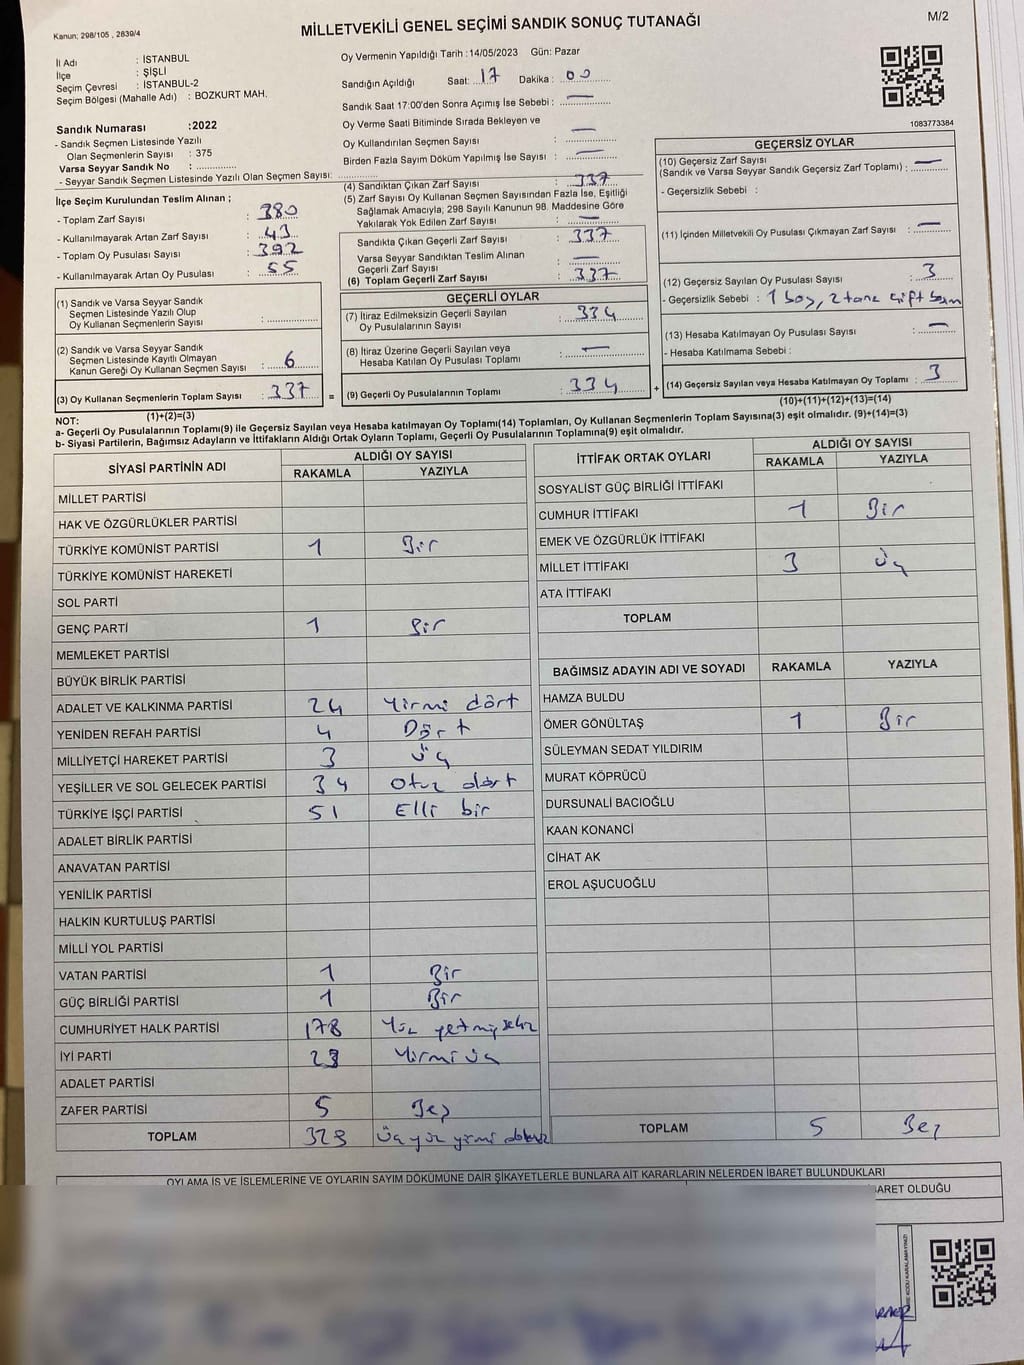 Kanun; 298/105 , 2839/4
MİLLETVEKİLİ GENEL SEÇİMİ SANDIK SONUÇ TUTANAĞI
M/2
İl Adı : İSTANBUL
İlçe : ŞİŞLİ
Seçim Çevresi : İSTANBUL-2
Seçim Bölgesi (Mahalle Adı) : BOZKURT MAH.
Sandık Numarası :2022
- Sandık Seçmen Listesinde Yazılı
Olan Seçmenlerin Sayısı : 375
Varsa Seyyar Sandık No :
- Seyyar Sandık Seçmen Listesinde Yazılı Olan Seçmen Sayısı:
Oy Vermenin Yapıldığı Tarih :14/05/2023 Gün: Pazar
Sandığın Açıldığı Saat: 17 Dakika : 00
Sandık Saat 17:00'den Sonra Açımış İse Sebebi : —
Oy Verme Saati Bitiminde Sırada Bekleyen ve
Oy Kullandırılan Seçmen Sayısı : —
Birden Fazla Sayım Döküm Yapılmış İse Sayısı : —
1083773384
İlçe Seçim Kurulundan Teslim Alınan ;
- Toplam Zarf Sayısı : 380
- Kullanılmayarak Artan Zarf Sayısı : 43
- Toplam Oy Pusulası Sayısı : 392
- Kullanılmayarak Artan Oy Pusulası : 55
(1) Sandık ve Varsa Seyyar Sandık
Seçmen Listesinde Yazılı Olup
Oy Kullanan Seçmenlerin Sayısı :
(2) Sandık ve Varsa Seyyar Sandık
Seçmen Listesinde Kayıtlı Olmayan
Kanun Gereği Oy Kullanan Seçmen Sayısı : 6
(3) Oy Kullanan Seçmenlerin Toplam Sayısı : 337 =
(1)+(2)=(3)
(4) Sandıktan Çıkan Zarf Sayısı : 337
(5) Zarf Sayısı Oy Kullanan Seçmen Sayısından Fazla İse, Eşitliği
Sağlamak Amacıyla; 298 Sayılı Kanunun 98. Maddesine Göre
Yakılarak Yok Edilen Zarf Sayısı : —
Sandıkta Çıkan Geçerli Zarf Sayısı : 337
Varsa Seyyar Sandıktan Teslim Alınan
Geçerli Zarf Sayısı : —
(6) Toplam Geçerli Zarf Sayısı : 337
GEÇERLİ OYLAR
(7) İtiraz Edilmeksizin Geçerli Sayılan
Oy Pusulalarının Sayısı : 334
(8) İtiraz Üzerine Geçerli Sayılan veya
Hesaba Katılan Oy Pusulası Toplamı : —
(9) Geçerli Oy Pusulalarının Toplamı : 334 +
GEÇERSİZ OYLAR
(10) Geçersiz Zarf Sayısı
(Sandık ve Varsa Seyyar Sandık Geçersiz Zarf Toplamı) : —
- Geçersizlik Sebebi :
(11) İçinden Milletvekili Oy Pusulası Çıkmayan Zarf Sayısı : —
(12) Geçersiz Sayılan Oy Pusulası Sayısı : 3
- Geçersizlik Sebebi : 1 boş, 2 tane çift basım
(13) Hesaba Katılmayan Oy Pusulası Sayısı : —
- Hesaba Katılmama Sebebi :
(14) Geçersiz Sayılan veya Hesaba Katılmayan Oy Toplamı : 3
(10)+(11)+(12)+(13)=(14)
NOT:
a- Geçerli Oy Pusulalarının Toplamı(9) ile Geçersiz Sayılan veya Hesaba katılmayan Oy Toplamı(14) Toplamları, Oy Kullanan Seçmenlerin Toplam Sayısına(3) eşit olmalıdır. (9)+(14)=(3)
b- Siyasi Partilerin, Bağımsız Adayların ve İttifakların Aldığı Ortak Oyların Toplamı, Geçerli Oy Pusulalarının Toplamına(9) eşit olmalıdır.
SİYASİ PARTİNİN ADI ALDIĞI OY SAYISI
RAKAMLA YAZIYLA
MİLLET PARTİSİ
HAK VE ÖZGÜRLÜKLER PARTİSİ
TÜRKİYE KOMÜNİST PARTİSİ 1 Bir
TÜRKİYE KOMÜNİST HAREKETİ
SOL PARTİ
GENÇ PARTİ 1 Bir
MEMLEKET PARTİSİ
BÜYÜK BİRLİK PARTİSİ
ADALET VE KALKINMA PARTİSİ 24 Yirmi dört
YENİDEN REFAH PARTİSİ 4 Dört
MİLLİYETÇİ HAREKET PARTİSİ 3 Üç
YEŞİLLER VE SOL GELECEK PARTİSİ 34 Otuz dört
TÜRKİYE İŞÇİ PARTİSİ 51 Elli bir
ADALET BİRLİK PARTİSİ
ANAVATAN PARTİSİ
YENİLİK PARTİSİ
HALKIN KURTULUŞ PARTİSİ
MİLLİ YOL PARTİSİ
VATAN PARTİSİ 1 Bir
GÜÇ BİRLİĞİ PARTİSİ 1 Bir
CUMHURİYET HALK PARTİSİ 178 Yüz yetmişsekiz
İYİ PARTİ 23 Yirmi üç
ADALET PARTİSİ
ZAFER PARTİSİ 5 Beş
TOPLAM 329 Üç yüz yirmi dokuz
İTTİFAK ORTAK OYLARI ALDIĞI OY SAYISI
RAKAMLA YAZIYLA
SOSYALİST GÜÇ BİRLİĞİ İTTİFAKI
CUMHUR İTTİFAKI 1 Bir
EMEK VE ÖZGÜRLÜK İTTİFAKI
MİLLET İTTİFAKI 3 Üç
ATA İTTİFAKI
TOPLAM
BAĞIMSIZ ADAYIN ADI VE SOYADI RAKAMLA YAZIYLA
HAMZA BULDU
ÖMER GÖNÜLTAŞ 1 Bir
SÜLEYMAN SEDAT YILDIRIM
MURAT KÖPRÜCÜ
DURSUNALİ BACIOĞLU
KAAN KONANCİ
CİHAT AK
EROL AŞUCUOĞLU
TOPLAM 5 Beş
OYLAMA İŞ VE İŞLEMLERİNE VE OYLARIN SAYIM DÖKÜMÜNE DAİR ŞİKAYETLERLE BUNLARA AİT KARARLARIN NELERDEN İBARET BULUNDUKLARI
BARET OLDUĞU